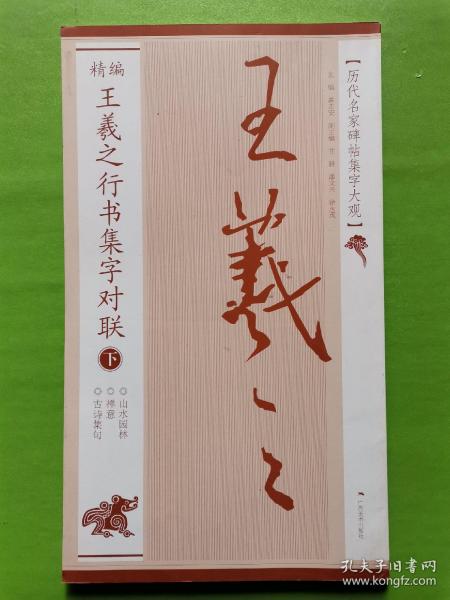 【历代名家碑帖集字大观】
王羲之
精编
王羲之行书集字对联
下
◎山水园林
◎禅意
◎古诗集句
广西美术出版社
孔夫子旧书网
www.kongfz.com